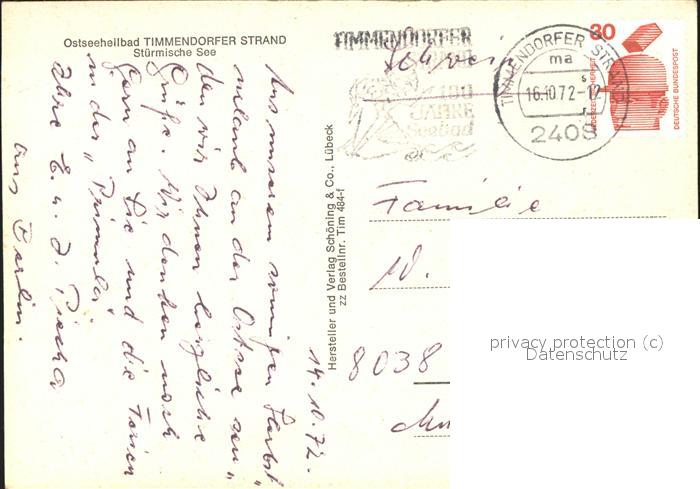 Ostseeheilbad TIMMENDORFER STRAND
Stürmische See
TIMMENDORFER STRAND
100
JAHRE
Seebad
TIMMENDORFER STRAND
ma
16.10.72-12
2408
30
JEDERZEIT SICHERHEIT
DEUTSCHE BUNDESPOST
Schweiz
Hersteller und Verlag Schöning & Co., Lübeck
zz Bestellnr. Tim 484-f
14.10.72.
Aus unserem sonnigen Herbst-
urlaub an der Ostsee sen-
den wir Ihnen herzliche
Grüße. Wir denken noch
gern an Sie und die Ferien
in der "Primula"
Ihre E. u. J.
aus Berlin.
Familie
W.
8038
privacy protection (c)
Datenschutz